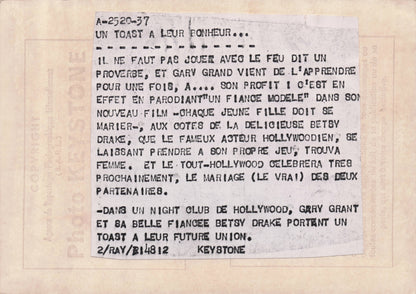 A-2520-37
UN TOAST A LEUR BONHEUR...
IL NE FAUT PAS JOUER AVEC LE FEU DIT UN
PROVERBE, ET GARY GRAND VIENT DE L'APPRENDRE
POUR UNE FOIS, A.... SON PROFIT ! C'EST EN
EFFET EN PARODIANT"UN FIANCE MODELE" DANS SON
NOUVEAU FILM -CHAQUE JEUNE FILLE DOIT SE
MARIER-, AUX COTES DE LA DELICIEUSE BETSY
DRAKE, QUE LE FAMEUX ACTEUR HOLLYWOODIEN, SE
LAISSANT PRENDRE A SON PROPRE JEU, TROUVA
FEMME. ET LE TOUT-HOLLYWOOD CELEBRERA TRES
PROCHAINEMENT, LE MARIAGE (LE VRAI) DES DEUX
PARTENAIRES.
-DANS UN NIGHT CLUB DE HOLLYWOOD, GARY GRANT
ET SA BELLE FIANCEE BETSY DRAKE PORTENT UN
TOAST A LEUR FUTURE UNION.
2/RAY/E14812 KEYSTONE